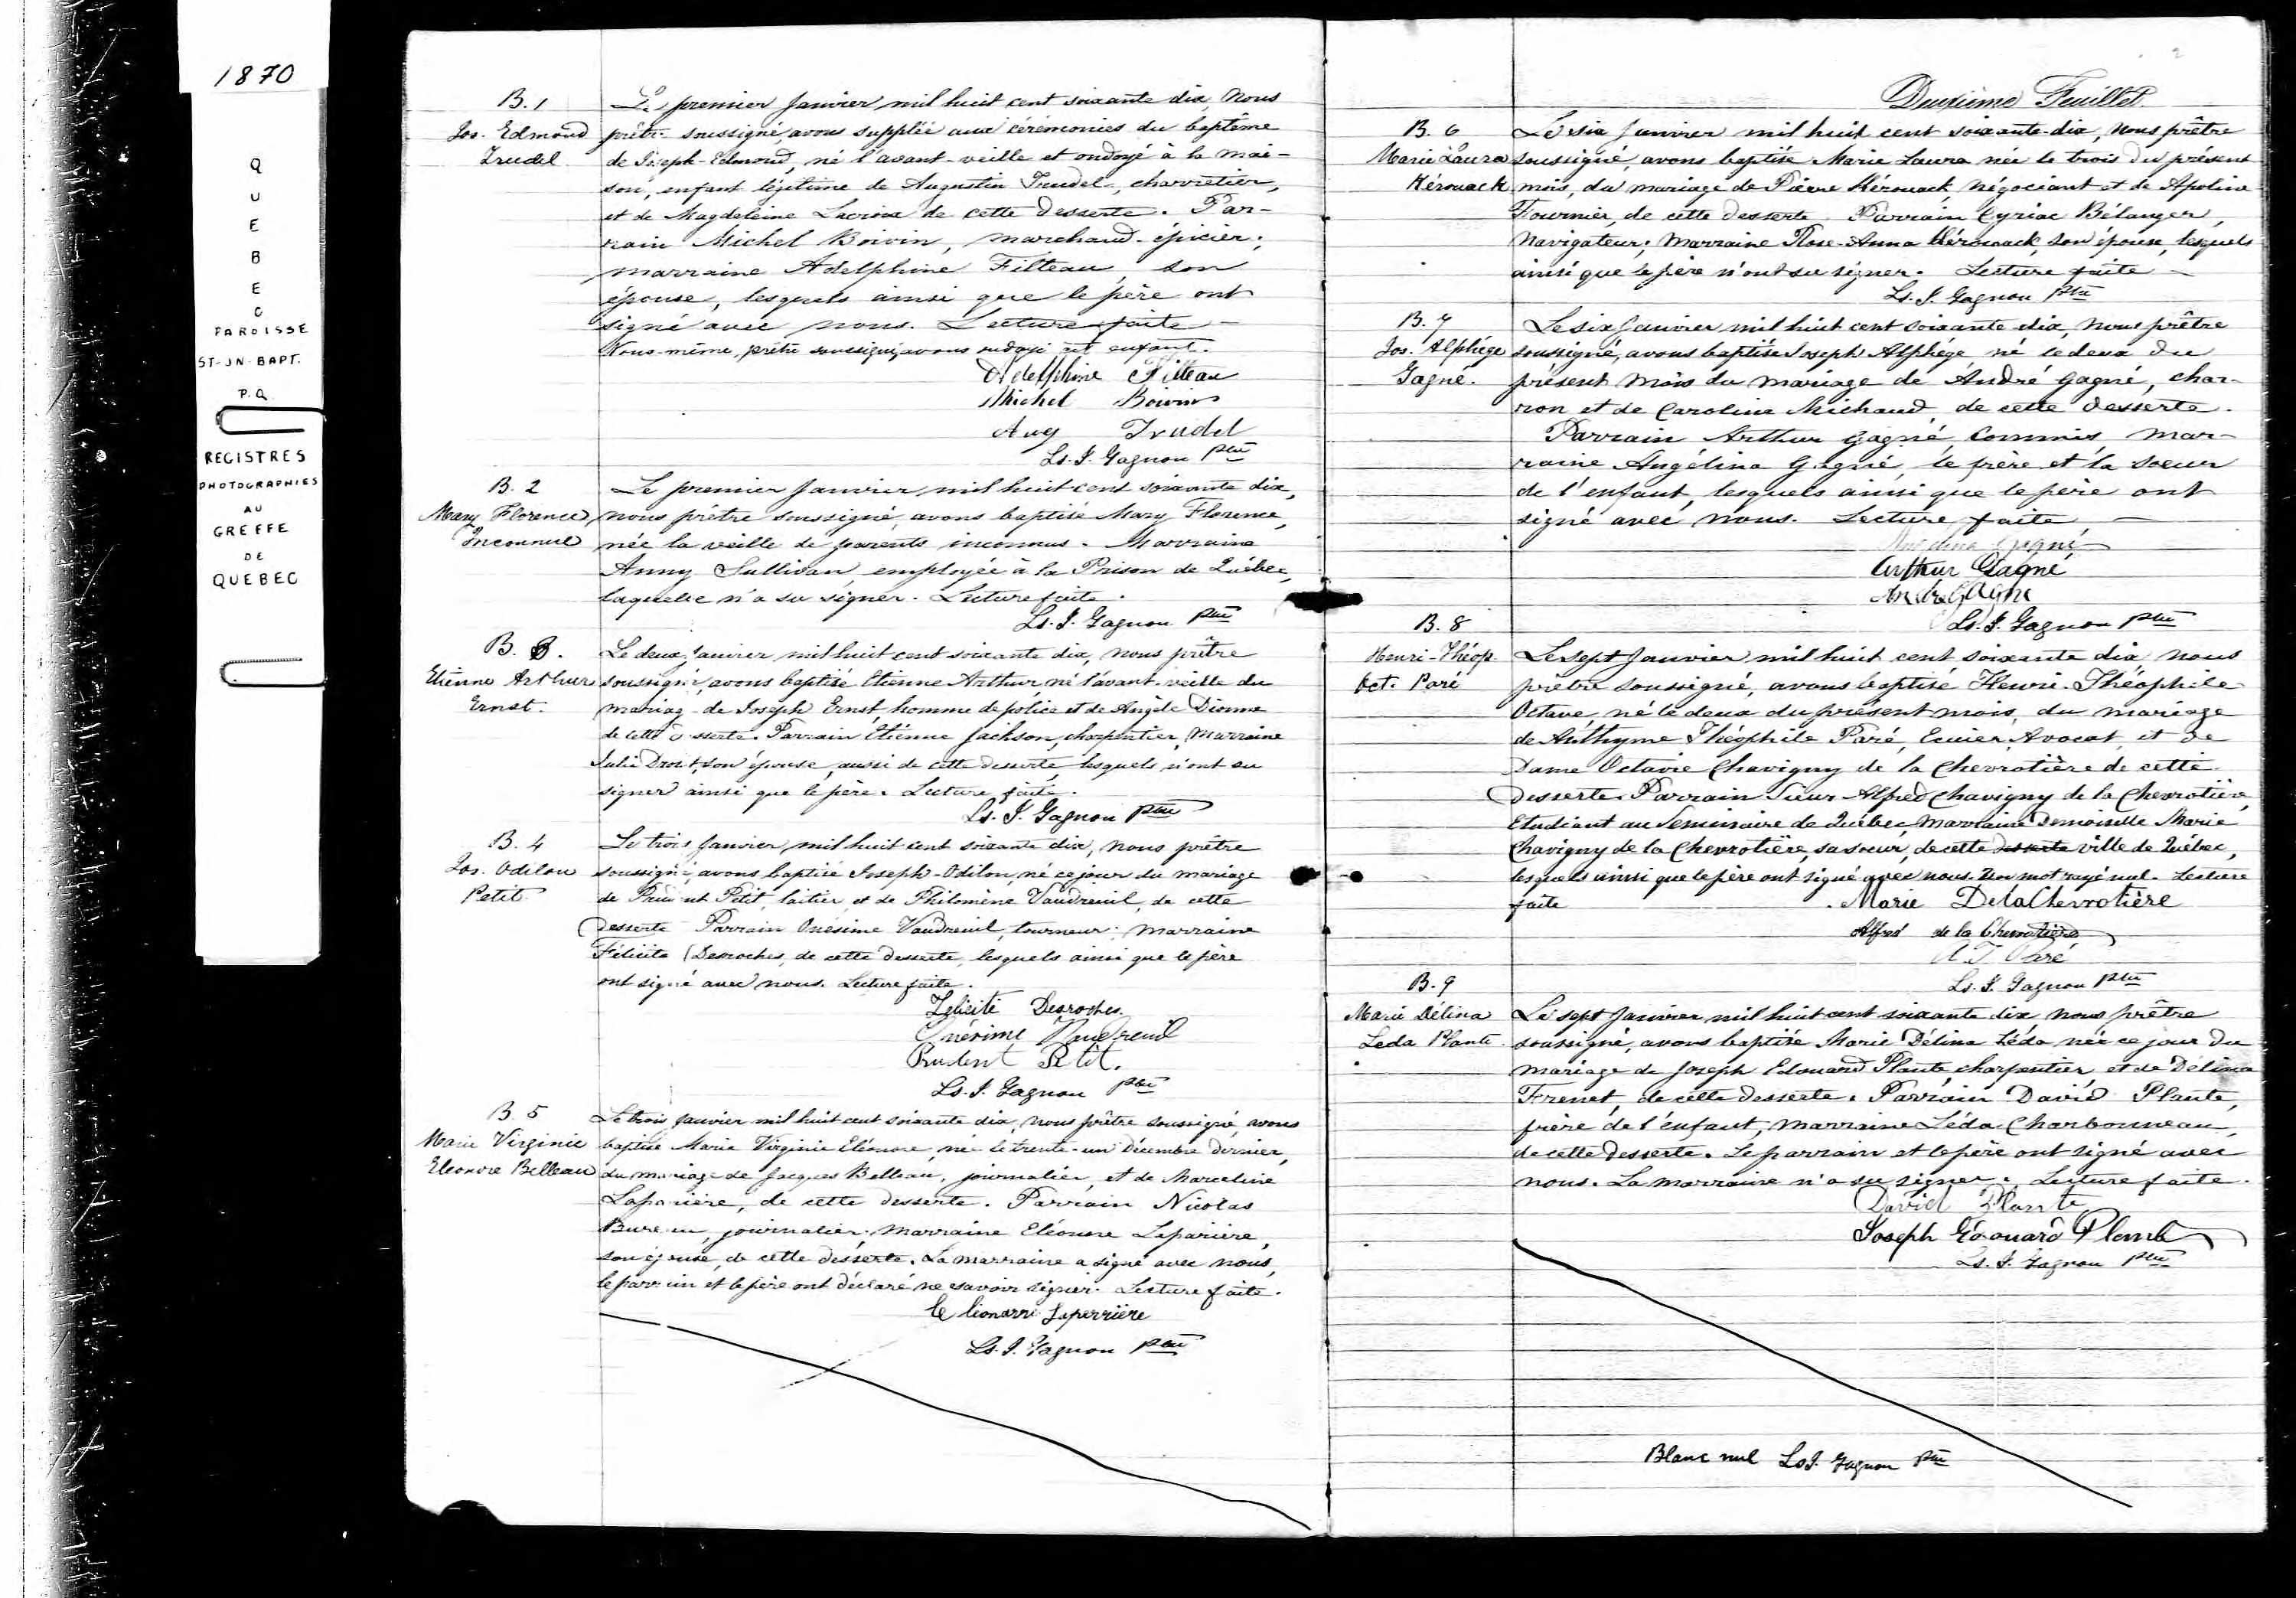 1870
Q
U
E
B
E
C
PAROISSE
ST-JN-BAPT.
P.Q.
REGISTRES
PHOTOGRAPHIES
AU
GREFFE
DE
QUEBEC
B. 1
Jos. Edmond
Trudel
Le premier Janvier mil huit cent soixante dix, Nous
prêtre soussigné, avons supplée aux cérémonies du baptême
de Joseph-Edmond, né l'avant-veille et ondoyé à la mai-
son, enfant légitime de Augustin Trudel, charretier,
et de Magdeleine Lacroix de cette desserte. Par-
rain Michel Boivin, marchand-épicier;
marraine Adelphine Filteau, son
épouse, lesquels ainsi que le père ont
signé avec nous. Lecture faite -
Nous-même, prêtre soussigné, avons ondoyé cet enfant.
Adelphine Filteau
Michel Boivin
Aug Trudel
Ls. J. Gagnon ptre
B. 2
Mary Florence
Inconnue
Le premier Janvier mil huit cent soixante dix,
nous prêtre soussigné, avons baptisé Mary Florence,
née la veille de parents inconnus. Marraine
Anny Sullivan, employée à la Prison de Québec,
laquelle n'a su signer. Lecture faite.
Ls. J. Gagnon ptre
B. 3.
Etienne Arthur
Ernst.
Le deux Janvier mil huit cent soixante dix, nous prêtre
soussigné, avons baptisé Etienne Arthur, né l'avant-veille du
mariag de Joseph Ernst, homme de police et de Angèle Dionne
de cette d sserte. Parrain Etienne Jackson, charpentier, Marraine
Julie Drolet, son épouse, aussi de cette desserte, lesquels n'ont su
signer ainsi que le père. Lecture faite.
Ls. J. Gagnon ptre
B. 4
Jos. Odilon
Petit
Le trois Janvier, mil huit cent soixante dix, nous prêtre
soussigné, avons baptisé Joseph-Odilon, né ce jour du mariage
de Prudent Petit, laitier, et de Philomène Vaudreuil, de cette
desserte Parrain Onésime Vaudreuil, tourneur; marraine
Félicité Desroches, de cette desserte, lesquels ainsi que le père
ont signé avec nous. Lecture faite.
Felicité Desroches.
Onésime Vaudreuil
Prudent Petit.
Ls. J. Gagnon ptre
B. 5
Marie Virginie
Eléonore Belleau
Le trois Janvier mil huit cent soixante dix, nous prêtre soussigné, avons
baptisé Marie Virginie Eléonore, née le trente-un Décembre dernier,
du mariage de Jacques Belleau, journalier, et de Marceline
Laparière, de cette desserte. Parrain Nicolas
Bureau, journalier; marraine Eléonore Laparière,
son épouse, de cette desserte. La marraine a signé avec nous,
le parrain et le père ont déclaré ne savoir signer. Lecture faite.
Laperrière
Ls. J. Gagnon ptre
Deuxième Feuillet.
B. 6
Marie Laura
Kérouack
Le six Janvier mil huit cent soixante-dix, nous prêtre
soussigné, avons baptisé Marie Laura née le trois du présent
mois, du mariage de Pierre Kérouack, négociant et de Apoline
Fournier, de cette desserte. Parrain Cyriac Bélanger,
Navigateur; Marraine Rose-Anna Kérouack, son épouse, lesquels
ainsi que le père n'ont su signer. Lecture faite -
Ls. J. Gagnon ptre
B. 7
Jos. Alphége
Gagné.
Le six Janvier mil huit cent soixante-dix, nous prêtre
soussigné, avons baptisé Joseph Alphége né le deux du
présent mois du mariage de André Gagné, char-
ron et de Caroline Michaud, de cette desserte.
Parrain Arthur Gagné, Commis, mar-
raine Angélina Gagné, le frère et la soeur
de l'enfant, lesquels ainsi que le père ont
signé avec nous. Lecture faite, -
Gagné
Arthur Gagné
André Gagné
Ls. J. Gagnon ptre
B. 8
Henri-Théop.
Oct. Paré
Le sept Janvier mil huit cent soixante dix, nous
prêtre soussigné, avons baptisé Henri-Théophile
Octave, né le deux du présent mois, du mariage
de Anthyme Théophile Paré, Ecuier, Avocat, et de
Dame Octavie Chavigny de la Chevrotière de cette
desserte. Parrain Sieur Alfred Chavigny de la Chevrotière,
Etudiant au Seminaire de Québec, Marraine Demoiselle Marie
Chavigny de la Chevrotière, sa soeur, de cette desserte ville de Québec,
lesquels ainsi que le père ont signé avec nous. Un mot rayé nul. Lecture
faite
Marie DelaChevrotière
Alfred de la Chevrotière
A. T. Paré
Ls. J. Gagnon ptre
B. 9
Marie Délina
Leda Plante
Le sept Janvier mil huit cent soixante dix nous prêtre
soussigné, avons baptisé Marie Délina Léda née ce jour du
mariage de Joseph Edouard Plante, charpentier, et de Délina
Frenet, de cette desserte. Parrain David Plante,
frère de l'enfant, marraine Léda Charbonneau,
de cette desserte. Le parrain et le père ont signé avec
nous. La marraine n'a su signer. Lecture faite.
David Plante
Joseph Edouard Plante
Ls. J. Gagnon ptre
Blanc nul Ls. J. Gagnon ptre